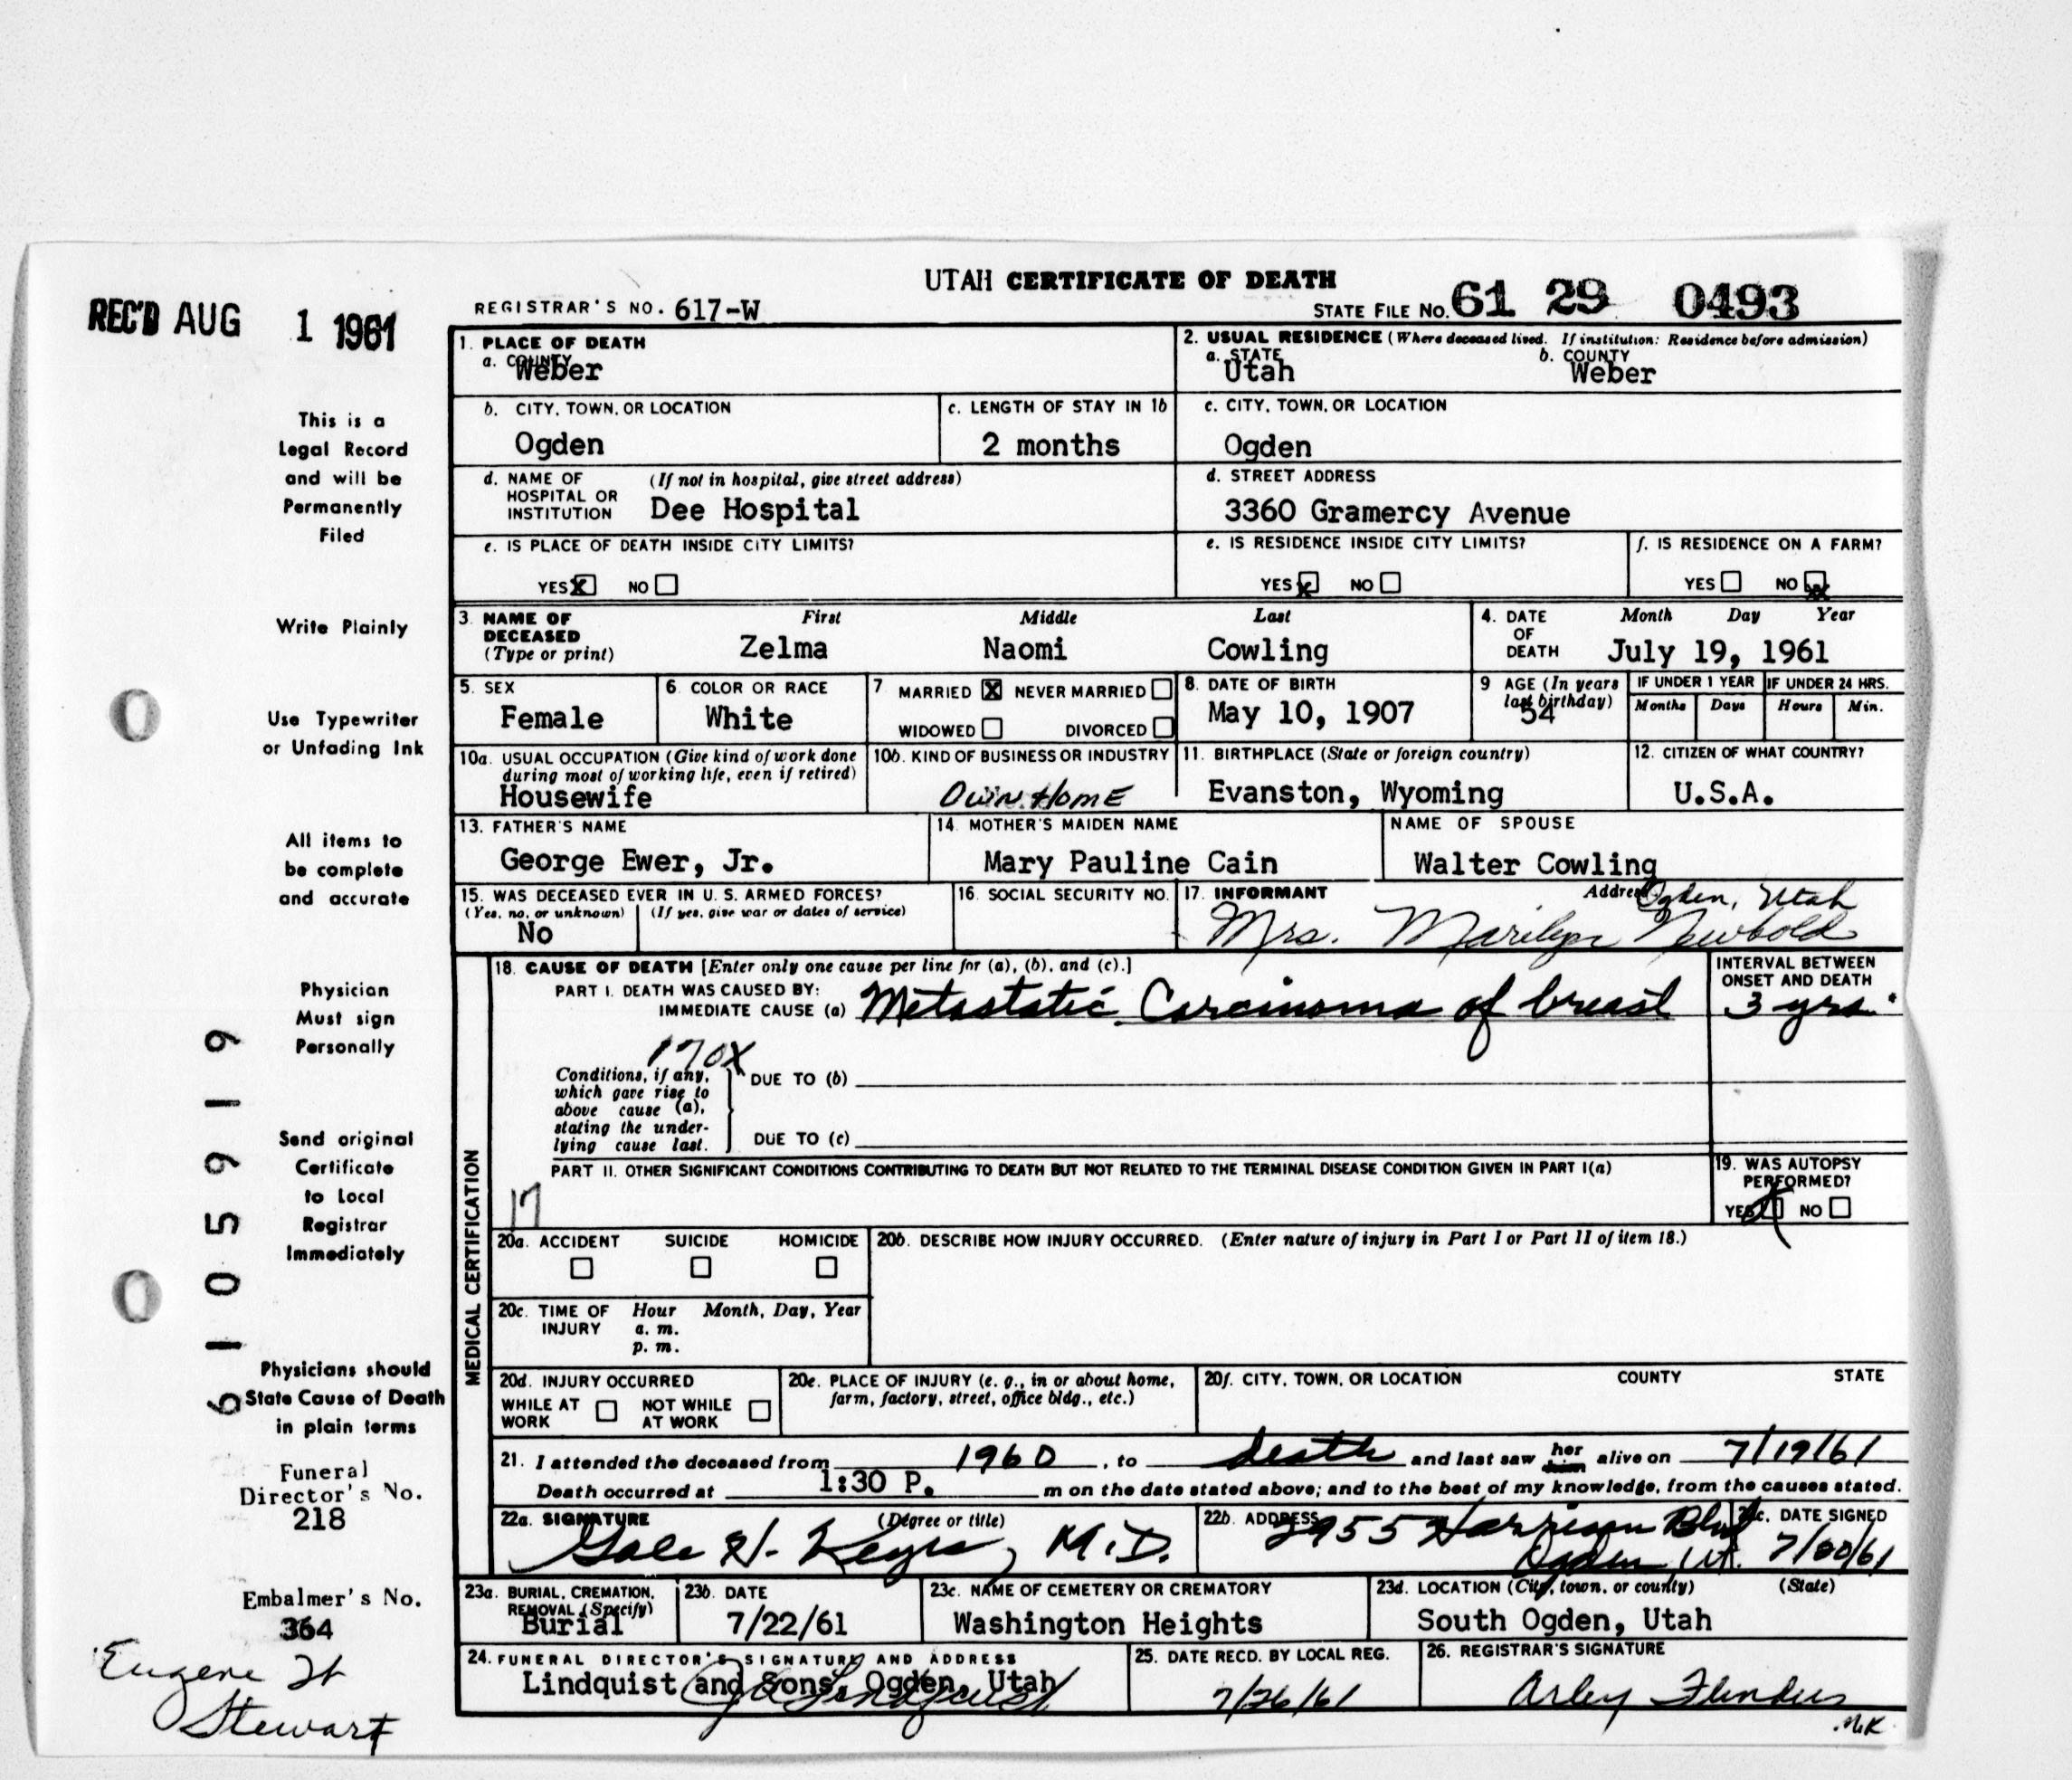 UTAH CERTIFICATE OF DEATH
REC'D AUG 1 1961
REGISTRAR'S NO. 617-W
STATE FILE NO. 61 29 0493
1. PLACE OF DEATH
a. COUNTY
Weber
2. USUAL RESIDENCE (Where deceased lived. If institution: Residence before admission)
a. STATE
Utah
b. COUNTY
Weber
b. CITY, TOWN, OR LOCATION
Ogden
c. LENGTH OF STAY IN 1b
2 months
c. CITY, TOWN, OR LOCATION
Ogden
d. NAME OF HOSPITAL OR INSTITUTION
(If not in hospital, give street address)
Dee Hospital
d. STREET ADDRESS
3360 Gramercy Avenue
e. IS PLACE OF DEATH INSIDE CITY LIMITS?
YES X NO
e. IS RESIDENCE INSIDE CITY LIMITS?
YES X NO
f. IS RESIDENCE ON A FARM?
YES NO X
3. NAME OF DECEASED
(Type or print)
First Middle Last
Zelma Naomi Cowling
4. DATE OF DEATH
Month Day Year
July 19, 1961
5. SEX
Female
6. COLOR OR RACE
White
7 MARRIED X NEVER MARRIED
WIDOWED DIVORCED
8. DATE OF BIRTH
May 10, 1907
9 AGE (In years last birthday)
54
IF UNDER 1 YEAR
Months Days
IF UNDER 24 HRS.
Hours Min.
10a. USUAL OCCUPATION (Give kind of work done during most of working life, even if retired)
Housewife
10b. KIND OF BUSINESS OR INDUSTRY
OWN HOME
11. BIRTHPLACE (State or foreign country)
Evanston, Wyoming
12. CITIZEN OF WHAT COUNTRY?
U.S.A.
13. FATHER'S NAME
George Ewer, Jr.
14. MOTHER'S MAIDEN NAME
Mary Pauline Cain
NAME OF SPOUSE
Walter Cowling
15. WAS DECEASED EVER IN U. S. ARMED FORCES?
(Yes, no, or unknown) (If yes, give war or dates of service)
No
16. SOCIAL SECURITY NO.
17. INFORMANT Address
Ogden, Utah
Mrs. Marilyn Newbold
18. CAUSE OF DEATH [Enter only one cause per line for (a), (b), and (c).]
PART I. DEATH WAS CAUSED BY:
IMMEDIATE CAUSE (a) Metastatic Carcinoma of breast
INTERVAL BETWEEN ONSET AND DEATH
3 yrs.
170X
Conditions, if any, which gave rise to above cause (a), stating the underlying cause last.
DUE TO (b)
DUE TO (c)
PART II. OTHER SIGNIFICANT CONDITIONS CONTRIBUTING TO DEATH BUT NOT RELATED TO THE TERMINAL DISEASE CONDITION GIVEN IN PART I(a)
17
19. WAS AUTOPSY PERFORMED?
YES NO
20a. ACCIDENT SUICIDE HOMICIDE
20b. DESCRIBE HOW INJURY OCCURRED. (Enter nature of injury in Part I or Part II of item 18.)
20c. TIME OF INJURY
Hour Month, Day, Year
a. m.
p. m.
20d. INJURY OCCURRED
WHILE AT WORK NOT WHILE AT WORK
20e. PLACE OF INJURY (e. g., in or about home, farm, factory, street, office bldg., etc.)
20f. CITY, TOWN, OR LOCATION COUNTY STATE
21. I attended the deceased from 1960, to death and last saw her him alive on 7/19/61
Death occurred at 1:30 P. m on the date stated above; and to the best of my knowledge, from the causes stated.
22a. SIGNATURE (Degree or title)
Gale H. Keyes, M.D.
22b. ADDRESS
2955 Harrison Blvd
Ogden, Ut.
22c. DATE SIGNED
7/20/61
MEDICAL CERTIFICATION
23a. BURIAL, CREMATION, REMOVAL (Specify)
Burial
23b. DATE
7/22/61
23c. NAME OF CEMETERY OR CREMATORY
Washington Heights
23d. LOCATION (City, town, or county) (State)
South Ogden, Utah
24. FUNERAL DIRECTOR'S SIGNATURE AND ADDRESS
Lindquist and Sons, Ogden, Utah
25. DATE RECD. BY LOCAL REG.
7/26/61
26. REGISTRAR'S SIGNATURE
Arley Flinders
MK
This is a
Legal Record
and will be
Permanently
Filed
Write Plainly
Use Typewriter
or Unfading Ink
All items to
be complete
and accurate
Physician
Must sign
Personally
Send original
Certificate
to Local
Registrar
Immediately
Physicians should
State Cause of Death
in plain terms
6105919
Funeral
Director's No.
218
Embalmer's No.
364
Eugene H
Stewart